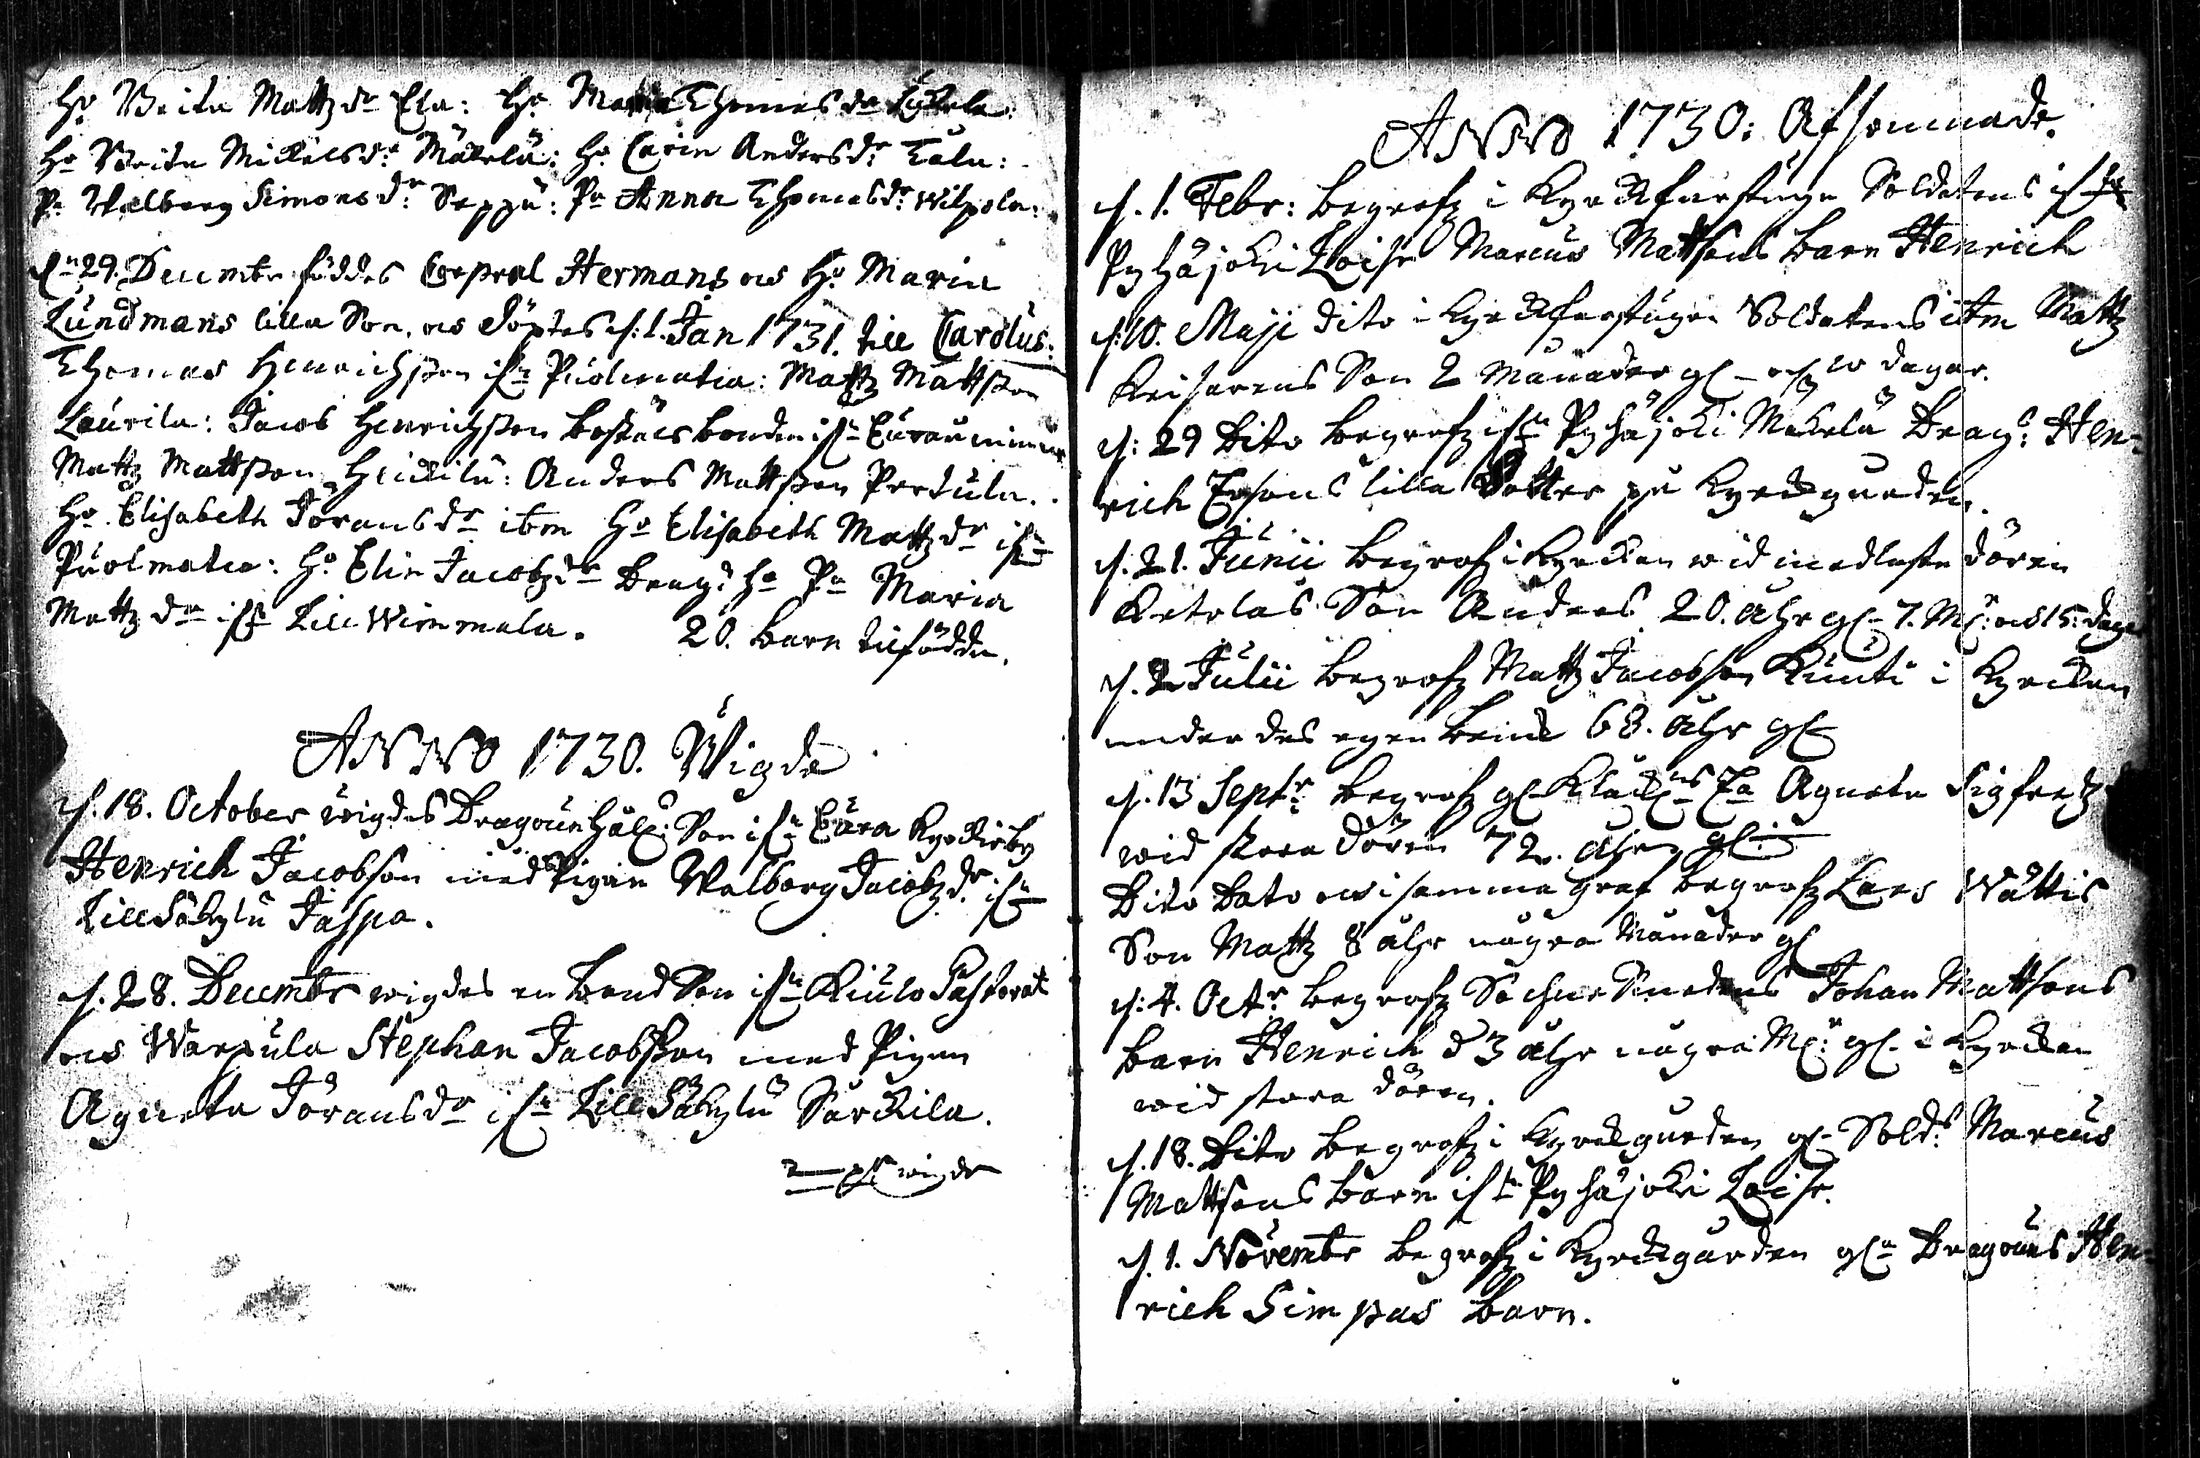 Ho Brita Mattzdr Ela: Ho Maria Thomasdr
Ho Brita Mickelsdr Mäkelä: Ho Carin Andersdr Tala:
Pa Walborg Simonsdr Seppä: Pa Anna Thomasdr Wilpola:
Dn 29. Decembr föddes Corpral Hermans os Ho Maria
Lundmans lilla Son, os döptes d: 1. Jan 1731. till Carolus:
Thomas Henrichsson ifr Puolimatca: Mattz Mattsson
Laurila: Jacob Henrichsson Bostäls bonden ifr Euraumine
Mattz Mattsson Heickilä: Anders Mattsson Pertula.
Ho Elisabeth Joransdr ibm Ho Elisabeth Mattzdr ifr
Puolmatca: Ho Elin Jacobzdr Drag: ho Pa Maria
Mattzdr ifr Lill Wimmala. 20. barn tilfödde.
ANNO 1730. Wigde
d. 18. October wigdes Dragoun Son ifr Eura Kyrckioby
Henrich Jacobson med Pigan Walborg Jacobzdr ifr
Lill Säkylä Jaspa.
d. 28. Decembr wigdes en bond Son ifr Kiulo Pastorat
os Warpula Stephan Jacobsson med Pigan
Agneta Joransdr ifr Lill Säkylä Särckilä.
2 wigde
ANNO 1730: Afsomnade.
d. 1. Febr: begrofz i Kyrckfarstugu Soldatens if
Pyhäjoki Loise Marcus Mattsons barn Henrich
d: 10. Maji dito i Kyrckfarstugun Soldatens ibm Mattz
Keisarens Son 2 Månader gl - och 10 dagar.
d: 29 Dito begrofz ifrn Pyhäjoki Mäkelä Drag: Hen-
rich Ersons lilla Dotter på Kyrckgården.
d. 21. Junii begrofz i Kyrckan wid medlaste dören
Ketolas Son Anders 20. åhr gl - 7. Mr: os 15: daga
d. 2 Julii begrofz Mattz Jacobson Kunti i Kyrckan
under des egen benck 68. åhr gl
d. 13 Septr begrofz gl Klåckns Ea Agneta Sigfredz
wid stora dören 72. åhrz gl:
Dito Dato os i samma graf begrofz Lars Wättis
Son Mattz 8 åhr några Månader gl
d: 4. Octr begrofz Sochne Smedens Johan Mattsons
barn Henrich d 3 åhr några Mr: gl. i Kyrckan
wid stora dören.
d. 18. Dito begrofz i Kyrckgården gl- Solds Marcus
Mattsons barn ifrn Pyhäjoki Loise.
d. 1. Novembr begrofz i Kyrckgården gla Dragouns Hen-
rich Simpas barn.